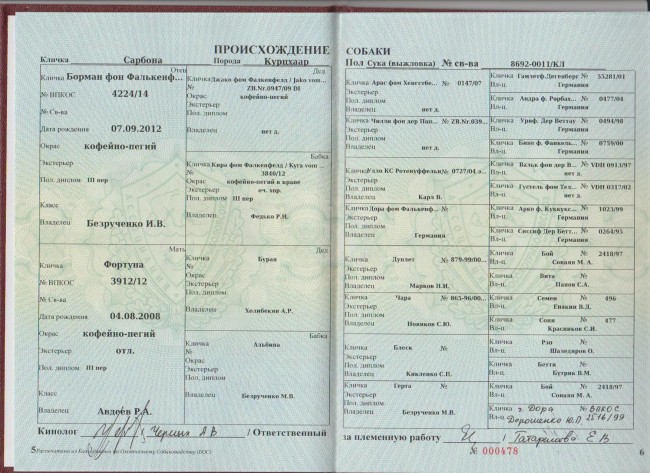 ПРОИСХОЖДЕНИЕ СОБАКИ
Кличка Сарбона Порода Курцхаар Пол Сука (выжловка) № св-ва 8692-0011/КЛ
Отец
Кличка Борман фон Фалькенф...
№ ВПКОС 4224/14
№ Св-ва
Дата рождения 07.09.2012
Окрас кофейно-пегий
Экстерьер
Пол. диплом III пер
Класс
Владелец Безрученко И.В.
Мать
Кличка Фортуна
№ ВПКОС 3912/12
№ Св-ва
Дата рождения 04.08.2008
Окрас кофейно-пегий
Экстерьер отл.
Пол. диплом III пер
Класс
Владелец Авдоев Р.А.
Дед
Кличка Джако фом Фалкенфелд / Jako vom ...
№ ZB.Nr.0947/09 DI
Окрас кофейно-пегий
Экстерьер
Пол. диплом
Владелец нет д.
Бабка
Кличка Кира фом Фалкенфелд / Kyra vom ...
№ 3840/12
Окрас кофейно-пегий в крапе
Экстерьер оч. хор.
Пол. диплом III пер
Владелец Федько Р.И.
Дед
Кличка Буран
№
Окрас
Экстерьер
Пол. диплом
Владелец Хелибекян А.Р.
Бабка
Кличка Альбина
№
Окрас
Экстерьер
Пол. диплом
Владелец Безрученко М.В.
Кличка Арас фом № 0147/07
Экстерьер
Пол. диплом
Владелец нет д.
Кличка Чилли фон дер Пап... № ZB.Nr.039...
Экстерьер
Пол. диплом
Владелец нет д.
Кличка КС Ротенуффельн № 0727/04
Экстерьер
Пол. диплом
Владелец Карл В.
Кличка Дора фом Фалькенф... №
Экстерьер
Пол. диплом
Владелец Германия
Кличка Дуплет № 879-99/00...
Экстерьер
Пол. диплом
Владелец Марков В.Н.
Кличка Чара № 865-96/00...
Экстерьер
Пол. диплом
Владелец Новиков С.Ю.
Кличка Блеск №
Экстерьер
Пол. диплом
Владелец Кикленко С.П.
Кличка Герта №
Экстерьер
Пол. диплом
Владелец Безрученко М.В.
Кличка № 55281/01
Вл-ц. Германия
Кличка Андра ф. Рорбах... № 0477/04
Вл-ц. Германия
Кличка Уриф. Дер Веттау № 0494/98
Вл-ц. Германия
Кличка Бине ф. Фанкель... № 0759/00
Вл-ц. Германия
Кличка Вальк фон дер В... № VDH 0913/97
Вл-ц. нет д.
Кличка Густель фом Тел... № VDH 0317/02
Вл-ц. нет д.
Кличка Арко ф. Куккукс... № 1023/99
Вл-ц. Германия
Кличка Сиссиф Дер Бегт... № 0264/95
Вл-ц. Германия
Кличка Бой № 2418/97
Вл-ц. Сопаян М. А.
Кличка Вита №
Вл-ц. Папов С.А.
Кличка Семен № 496
Вл-ц. Епакин В.Д.
Кличка Соня № 477
Вл-ц. Красников С.И.
Кличка Рэо №
Вл-ц. Шаландяров О.
Кличка Бегги №
Вл-ц. Бутрик В.М.
Кличка Бой № 2418/97
Вл-ц. Сопаян М. А.
Кличка г. Дора № ВПКОС
Вл-ц. Дорошенко Ю.П 2516/99
Кинолог Черных А В / Ответственный за племенную работу / Татаринова Е В
№ 000478
5 6